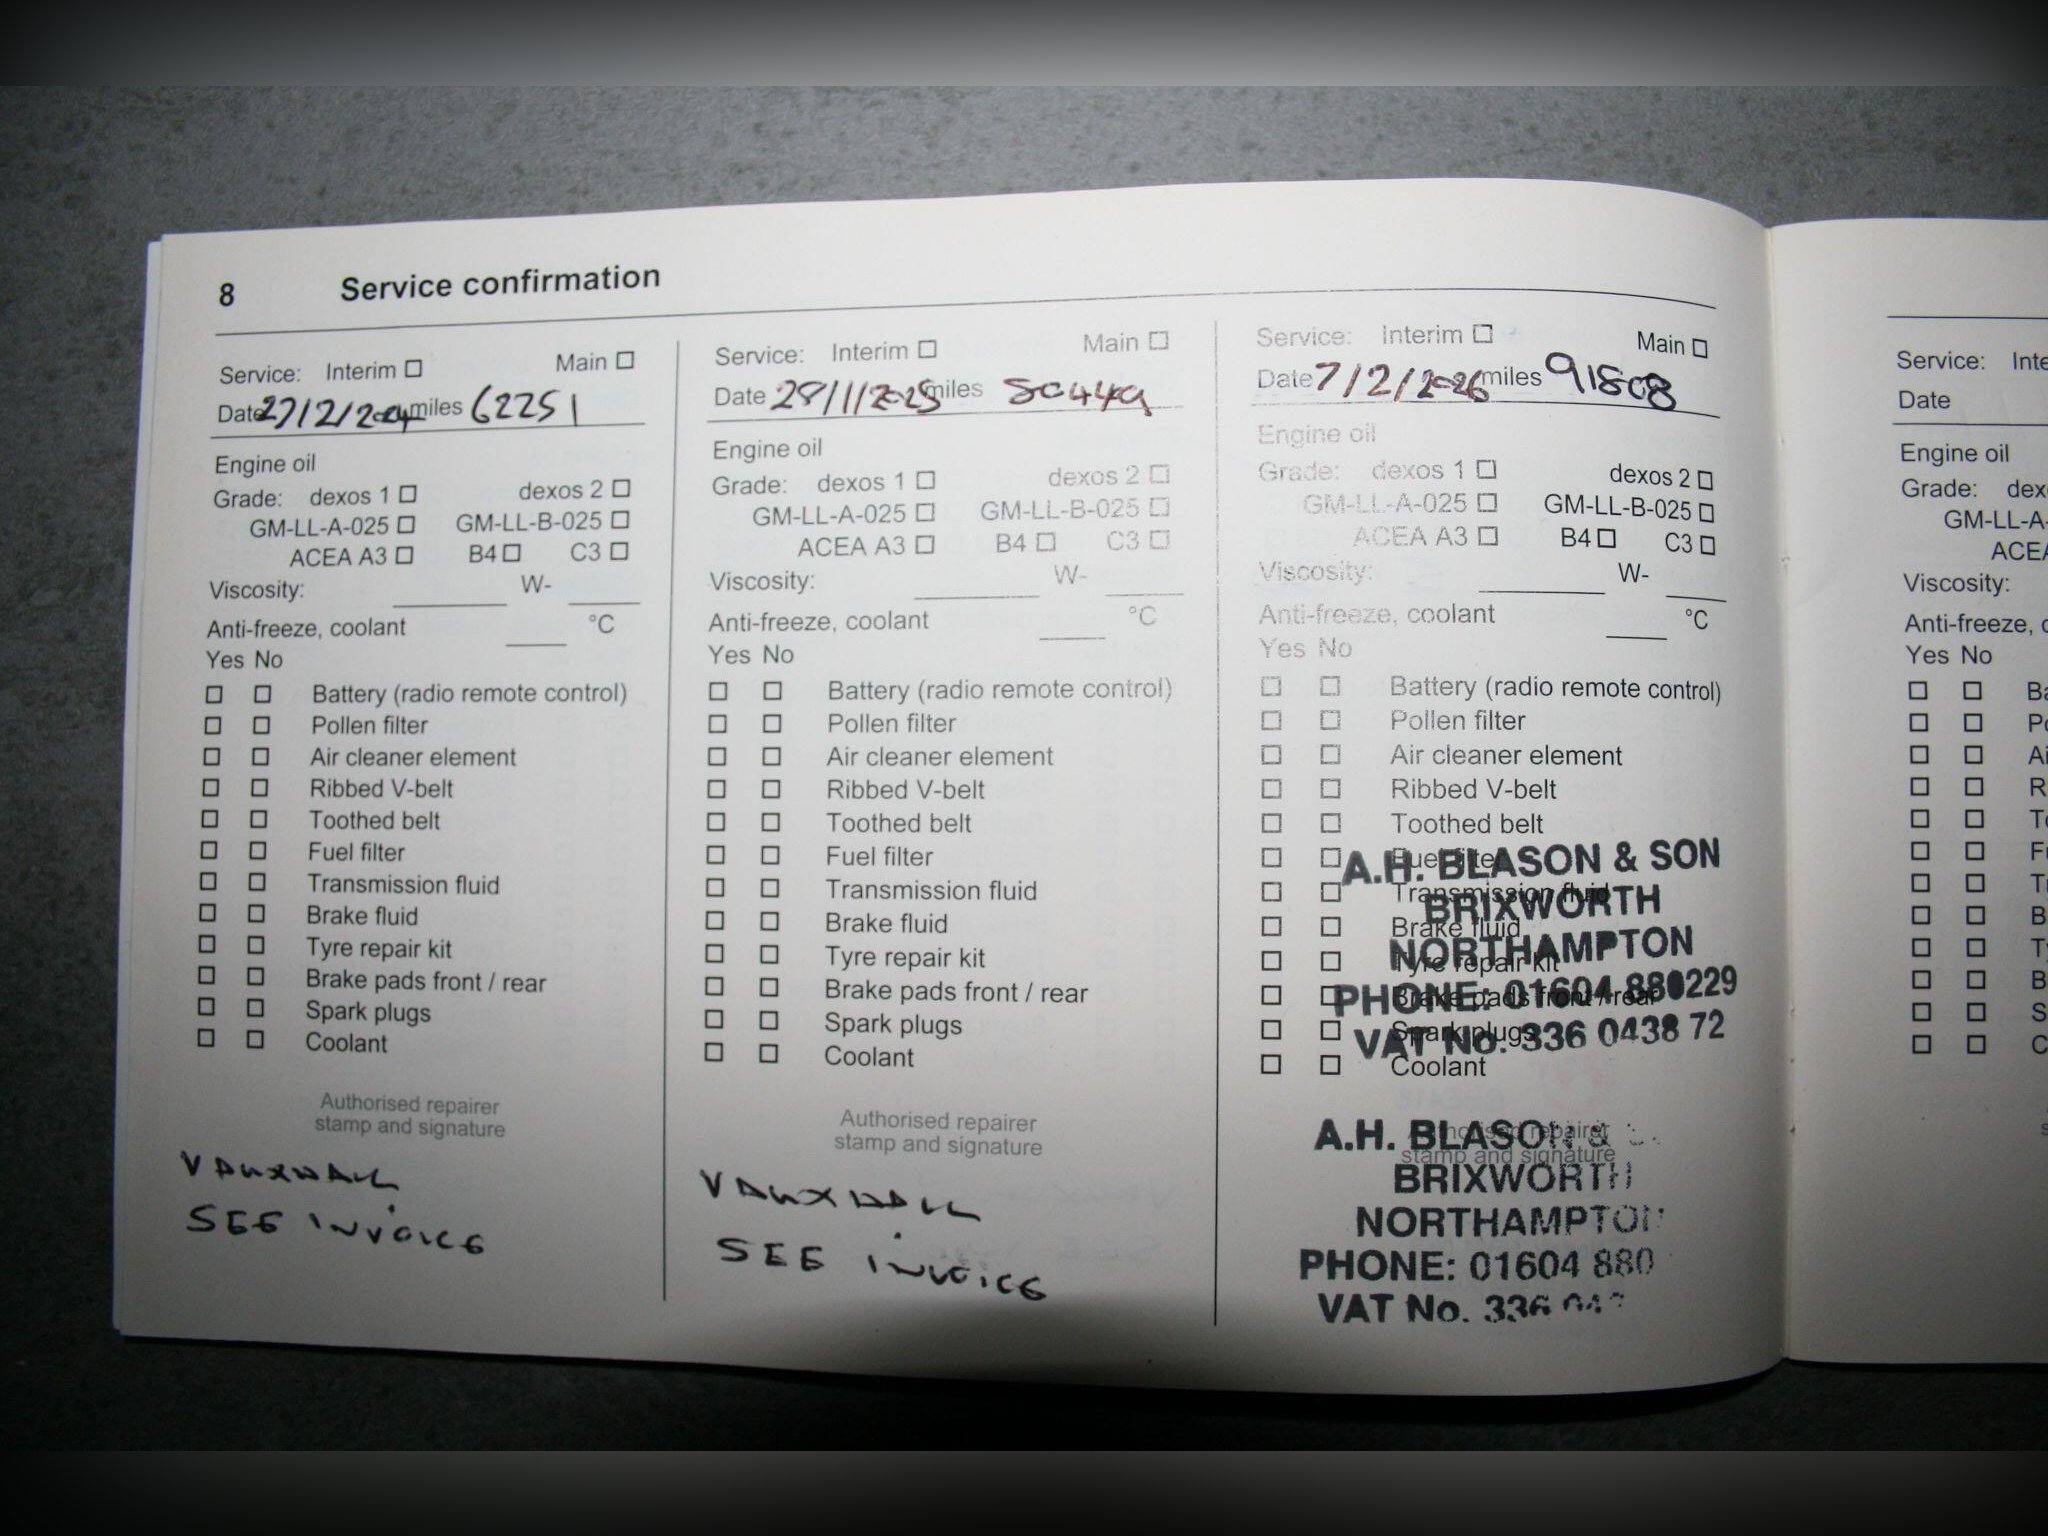 8 Service confirmation
Service: Interim Main
Date 27/2/2024 miles 62251
Engine oil
Grade: dexos 1 dexos 2
GM-LL-A-025 GM-LL-B-025
ACEA A3 B4 C3
Viscosity: W-
Anti-freeze, coolant °C
Yes No
Battery (radio remote control)
Pollen filter
Air cleaner element
Ribbed V-belt
Toothed belt
Fuel filter
Transmission fluid
Brake fluid
Tyre repair kit
Brake pads front / rear
Spark plugs
Coolant
Authorised repairer
stamp and signature
VAUXHALL
SEE INVOICE
Service: Interim Main
Date 28/1/2025 miles 80449
Engine oil
Grade: dexos 1 dexos 2
GM-LL-A-025 GM-LL-B-025
ACEA A3 B4 C3
Viscosity: W-
Anti-freeze, coolant °C
Yes No
Battery (radio remote control)
Pollen filter
Air cleaner element
Ribbed V-belt
Toothed belt
Fuel filter
Transmission fluid
Brake fluid
Tyre repair kit
Brake pads front / rear
Spark plugs
Coolant
Authorised repairer
stamp and signature
VAUXHALL
SEE INVOICE
Service: Interim Main
Date 7/2/2026 miles 91808
Engine oil
Grade: dexos 1 dexos 2
GM-LL-A-025 GM-LL-B-025
ACEA A3 B4 C3
Viscosity: W-
Anti-freeze, coolant °C
Yes No
Battery (radio remote control)
Pollen filter
Air cleaner element
Ribbed V-belt
Toothed belt
Fuel filter
Transmission fluid
Brake fluid
Tyre repair kit
Brake pads front / rear
Spark plugs
Coolant
A.H. BLASON & SON
BRIXWORTH
NORTHAMPTON
PHONE: 01604 880229
VAT No. 336 0438 72
Authorised repairer
stamp and signature
A.H. BLASON &
BRIXWORTH
NORTHAMPTON
PHONE: 01604 880
VAT No. 336
Service:
Date
Engine oil
Grade:
Viscosity:
Anti-freeze,
Yes No